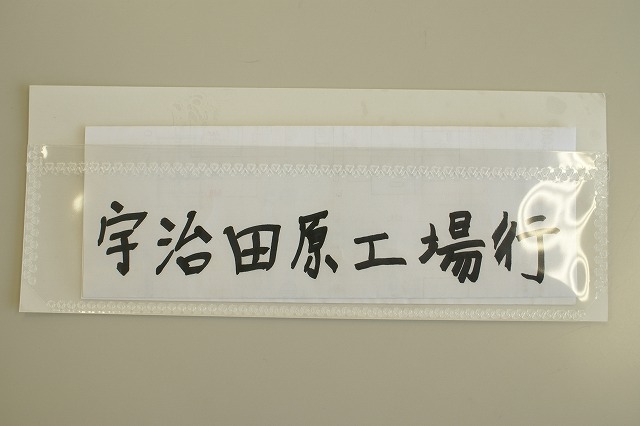 宇治田原工場行